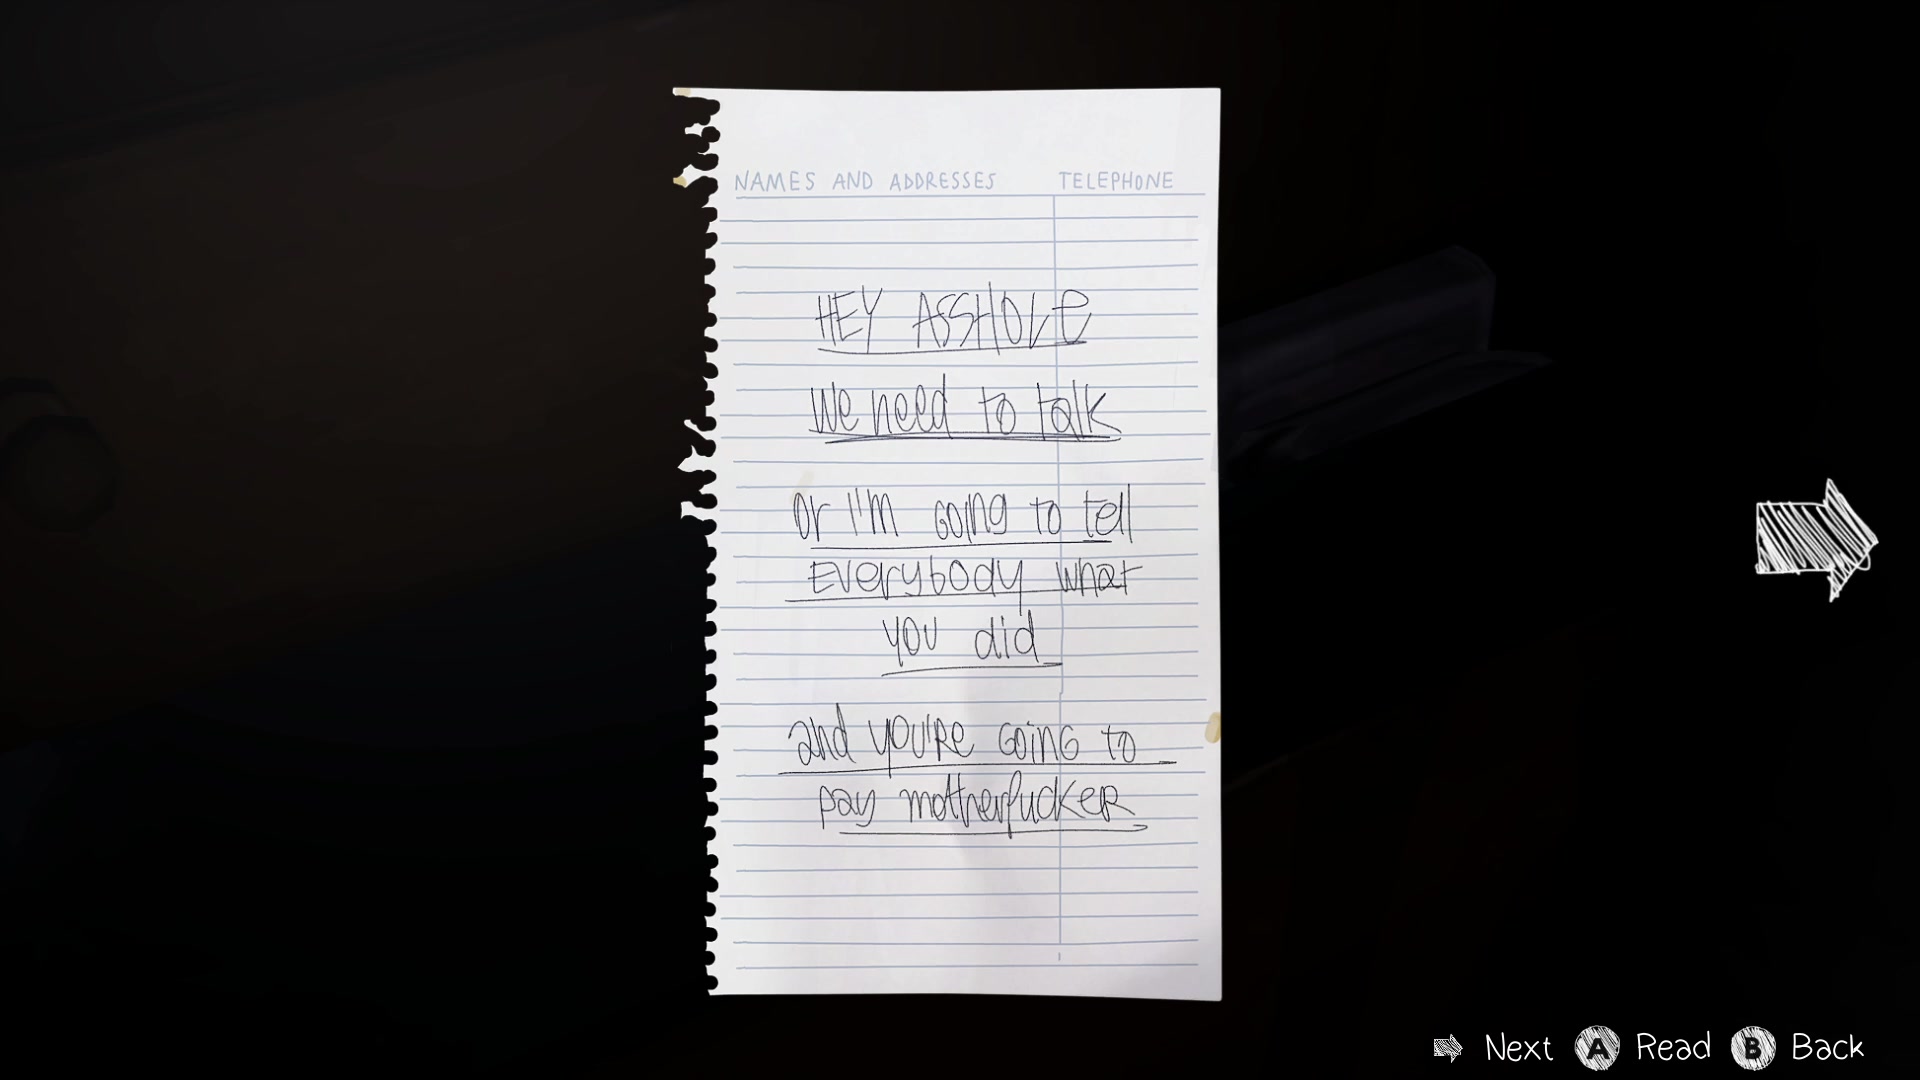 NAMES AND ADDRESSES TELEPHONE
HEY ASSHOLE
We need to talk
or I'm going to tell
Everybody what
you did
and you're GoinG to
pay motherfucker
Next A Read B Back